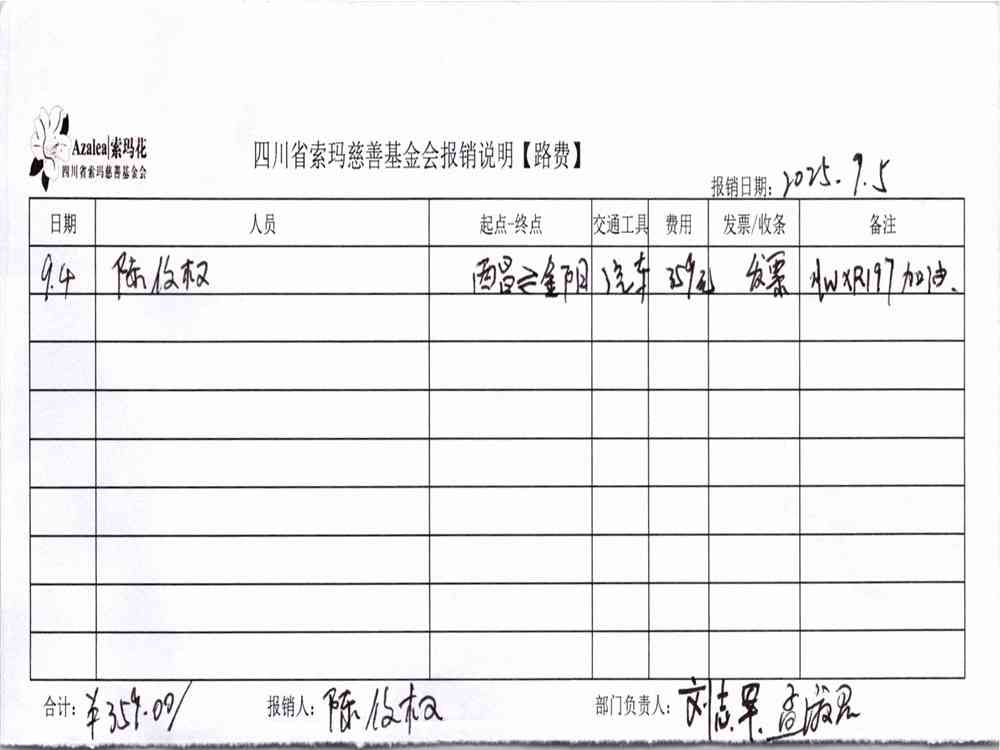 Azalea|索玛花
四川省索玛慈善基金会
四川省索玛慈善基金会报销说明【路费】
报销日期：2025.9.5
日期 人员 起点-终点 交通工具 费用 发票/收条 备注
9.4 陈 权 西昌⇌金阳 汽车 359元 发票 WXR197加油.
合计：¥359.00/ 报销人：陈 权 部门负责人：刘志军